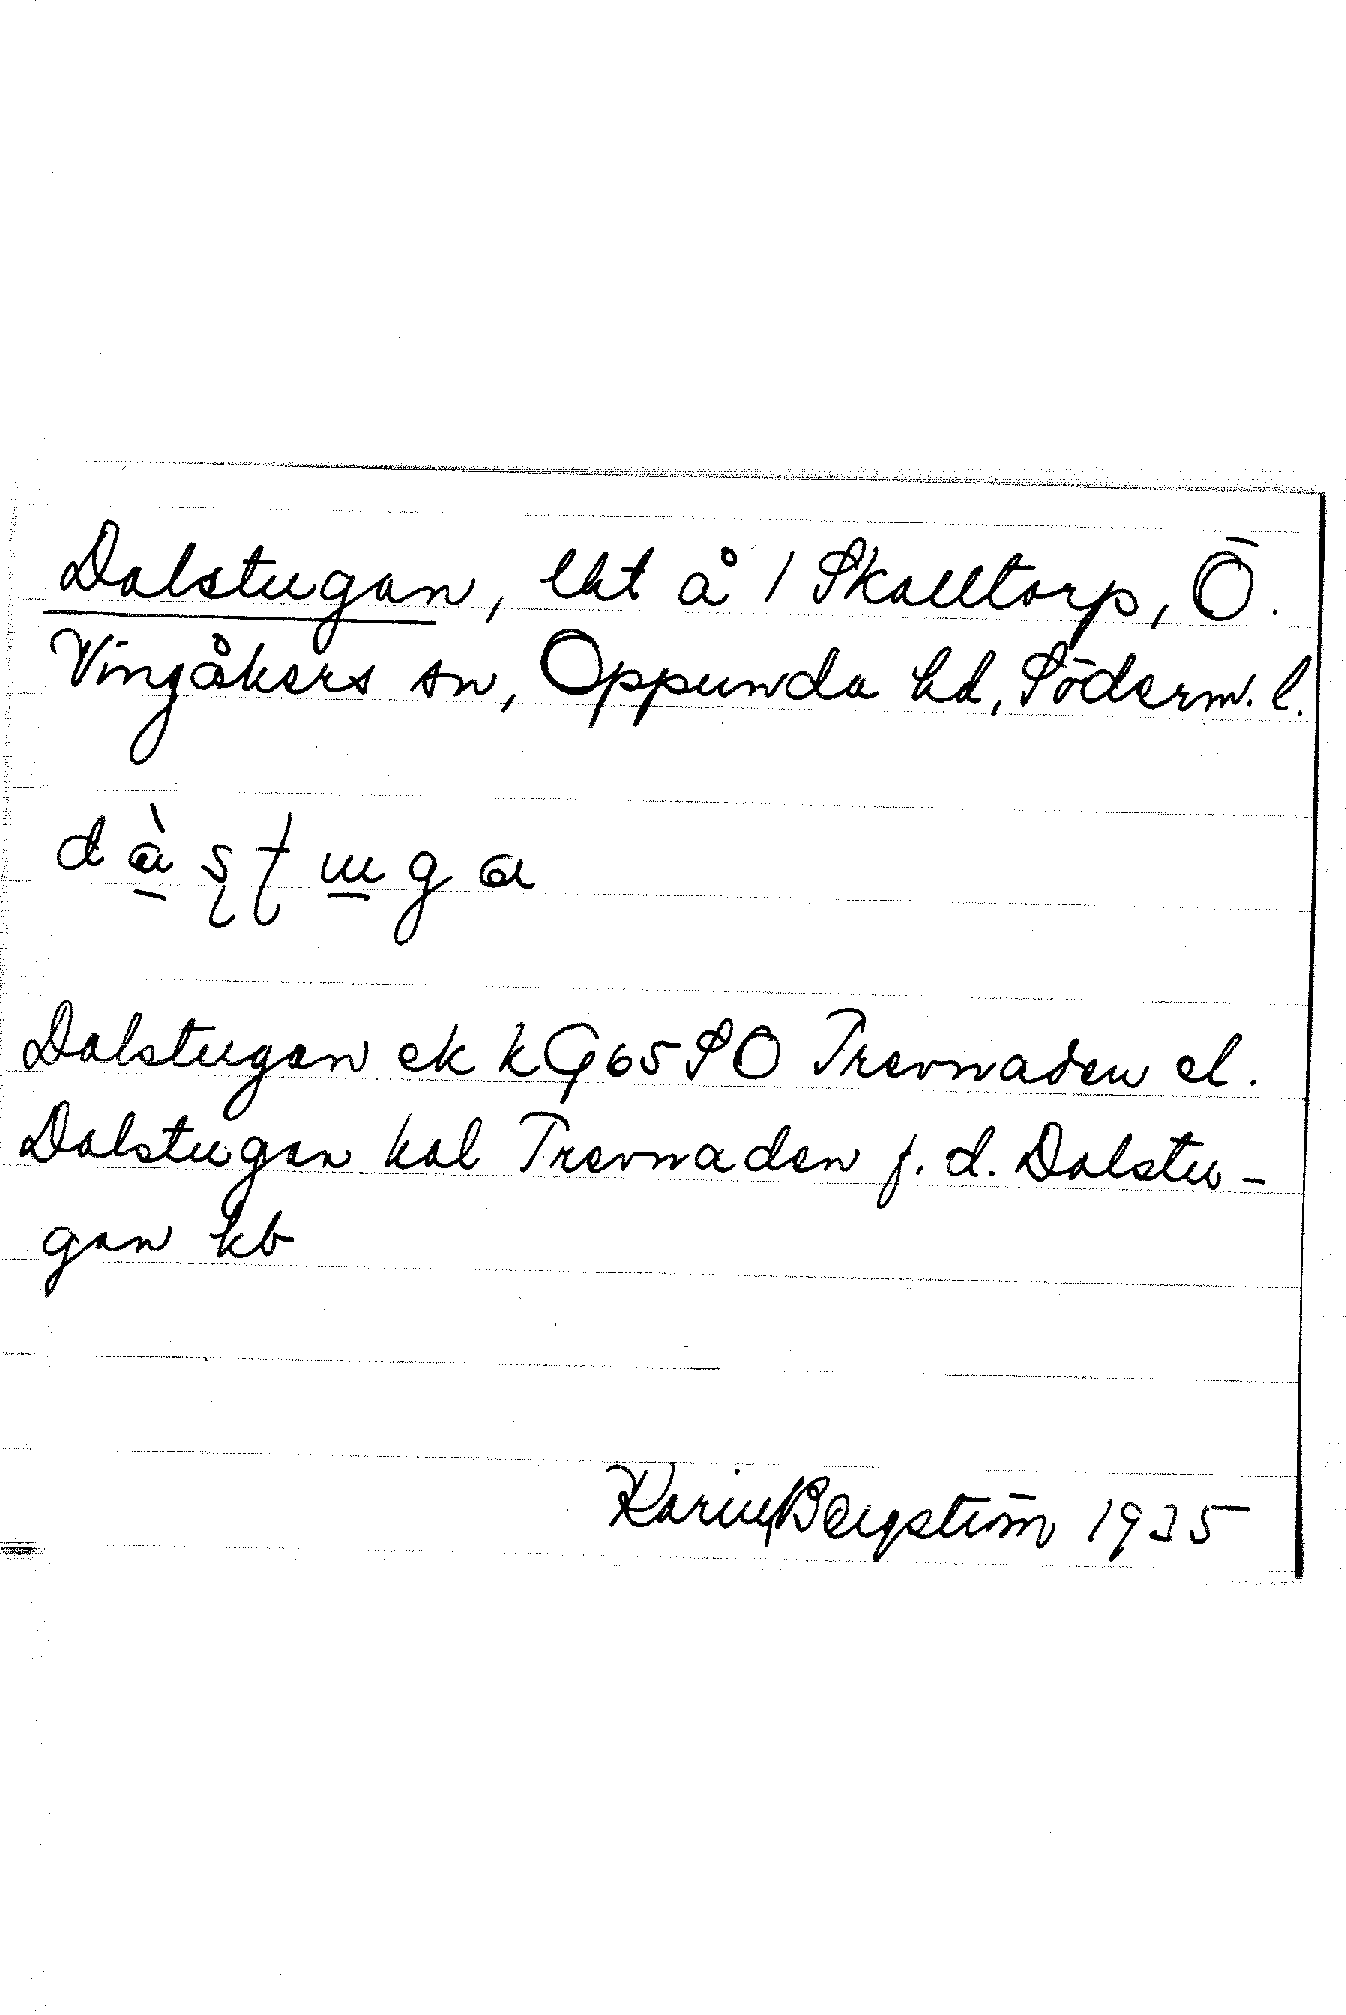 Dalstugan, lht å 1 Skalltorp, Ö.
Vingåkers sn, Oppunda hd, Söderm. l.
dàʂʈɯga
Dalstugan ek kG65SO Trevnaden el.
Dalstugan hal Trevnaden f. d. Dalstu-
gan kb
Karin Bergström 1935